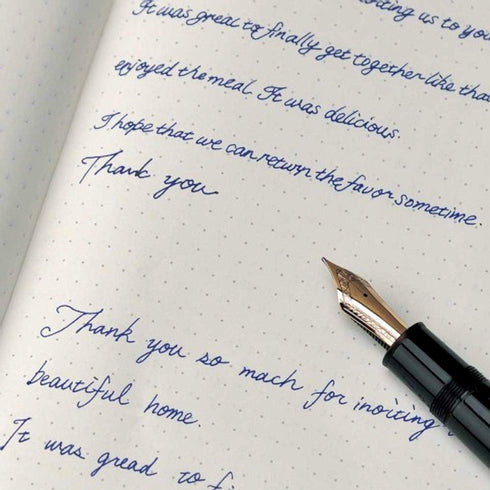 iting us to you
It was great to finally get together like that
enjoyed the meal. It was delicious
I hope that we can return the favor sometime.
Thank you
Thank you so mach for inoiting
beautiful home.
It was gread to f